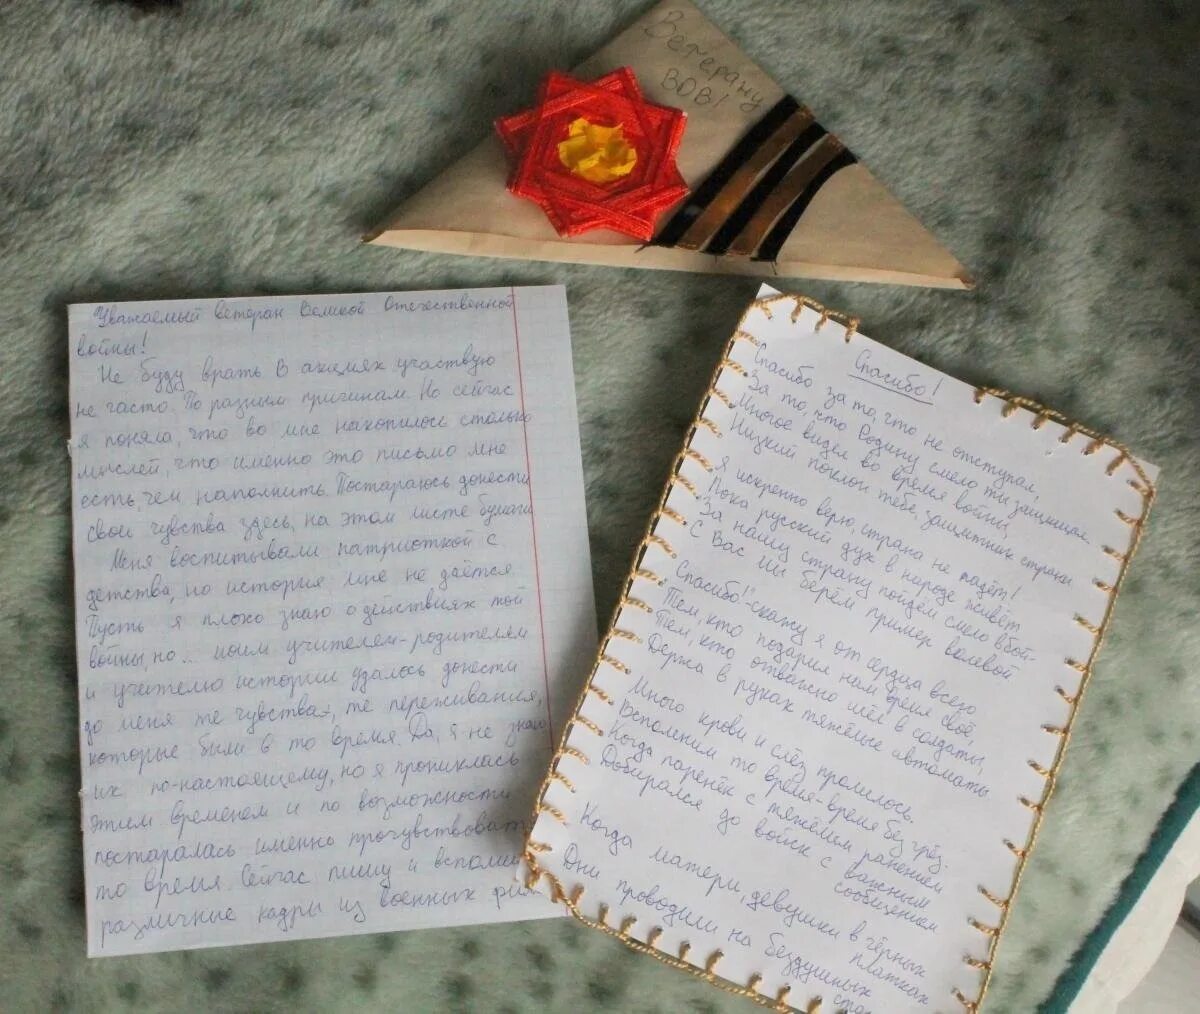 Ветерану
ВОВ!
Уважаемый ветеран Великой Отечественной
войны!
Не буду врать. В акциях участвую
не часто. По разным причинам. Но сейчас
я поняла, что во мне накопилось столько
мыслей, что именно это письмо мне
есть, чем наполнить. Постараюсь донести
свои чувства здесь, на этом листе бумаги.
Меня воспитывали патриоткой с
детства, но история мне не даётся.
Пусть я плохо знаю о действиях той
войны, но... моим учителем-родителям
и учителю истории удалось донести
до меня те чувства, те переживания,
которые были в то время. Да, я не знаю
их по-настоящему, но я прониклась
этим временем и по возможности
постаралась именно прочувствовать
то время. Сейчас пишу и вспоми
различные кадры из военных фил
Спасибо!
Спасибо за то, что не отступал,
За то, что Родину смело ты защищал.
Многое видел во время войны,
Низкий поклон тебе, защитник страны
Я искренно верю, страна не падёт!
Пока русский дух в народе живёт
За нашу страну пойдём смело в бой-
С Вас мы берём пример волевой
"Спасибо!"-скажу я от сердца всего
Тем, кто подарил нам время своё,
Тем, кто отважно шёл в солдаты,
Держа в руках тяжёлые автоматы
Много крови и слёз пролилось.
Вспомним то время-время без грёз.
Когда паренёк с тяжёлым ранением
Добирался до войск с важным
сообщением
Когда матери, девушки в чёрных
платках
Дни проводили на бездушных
ста